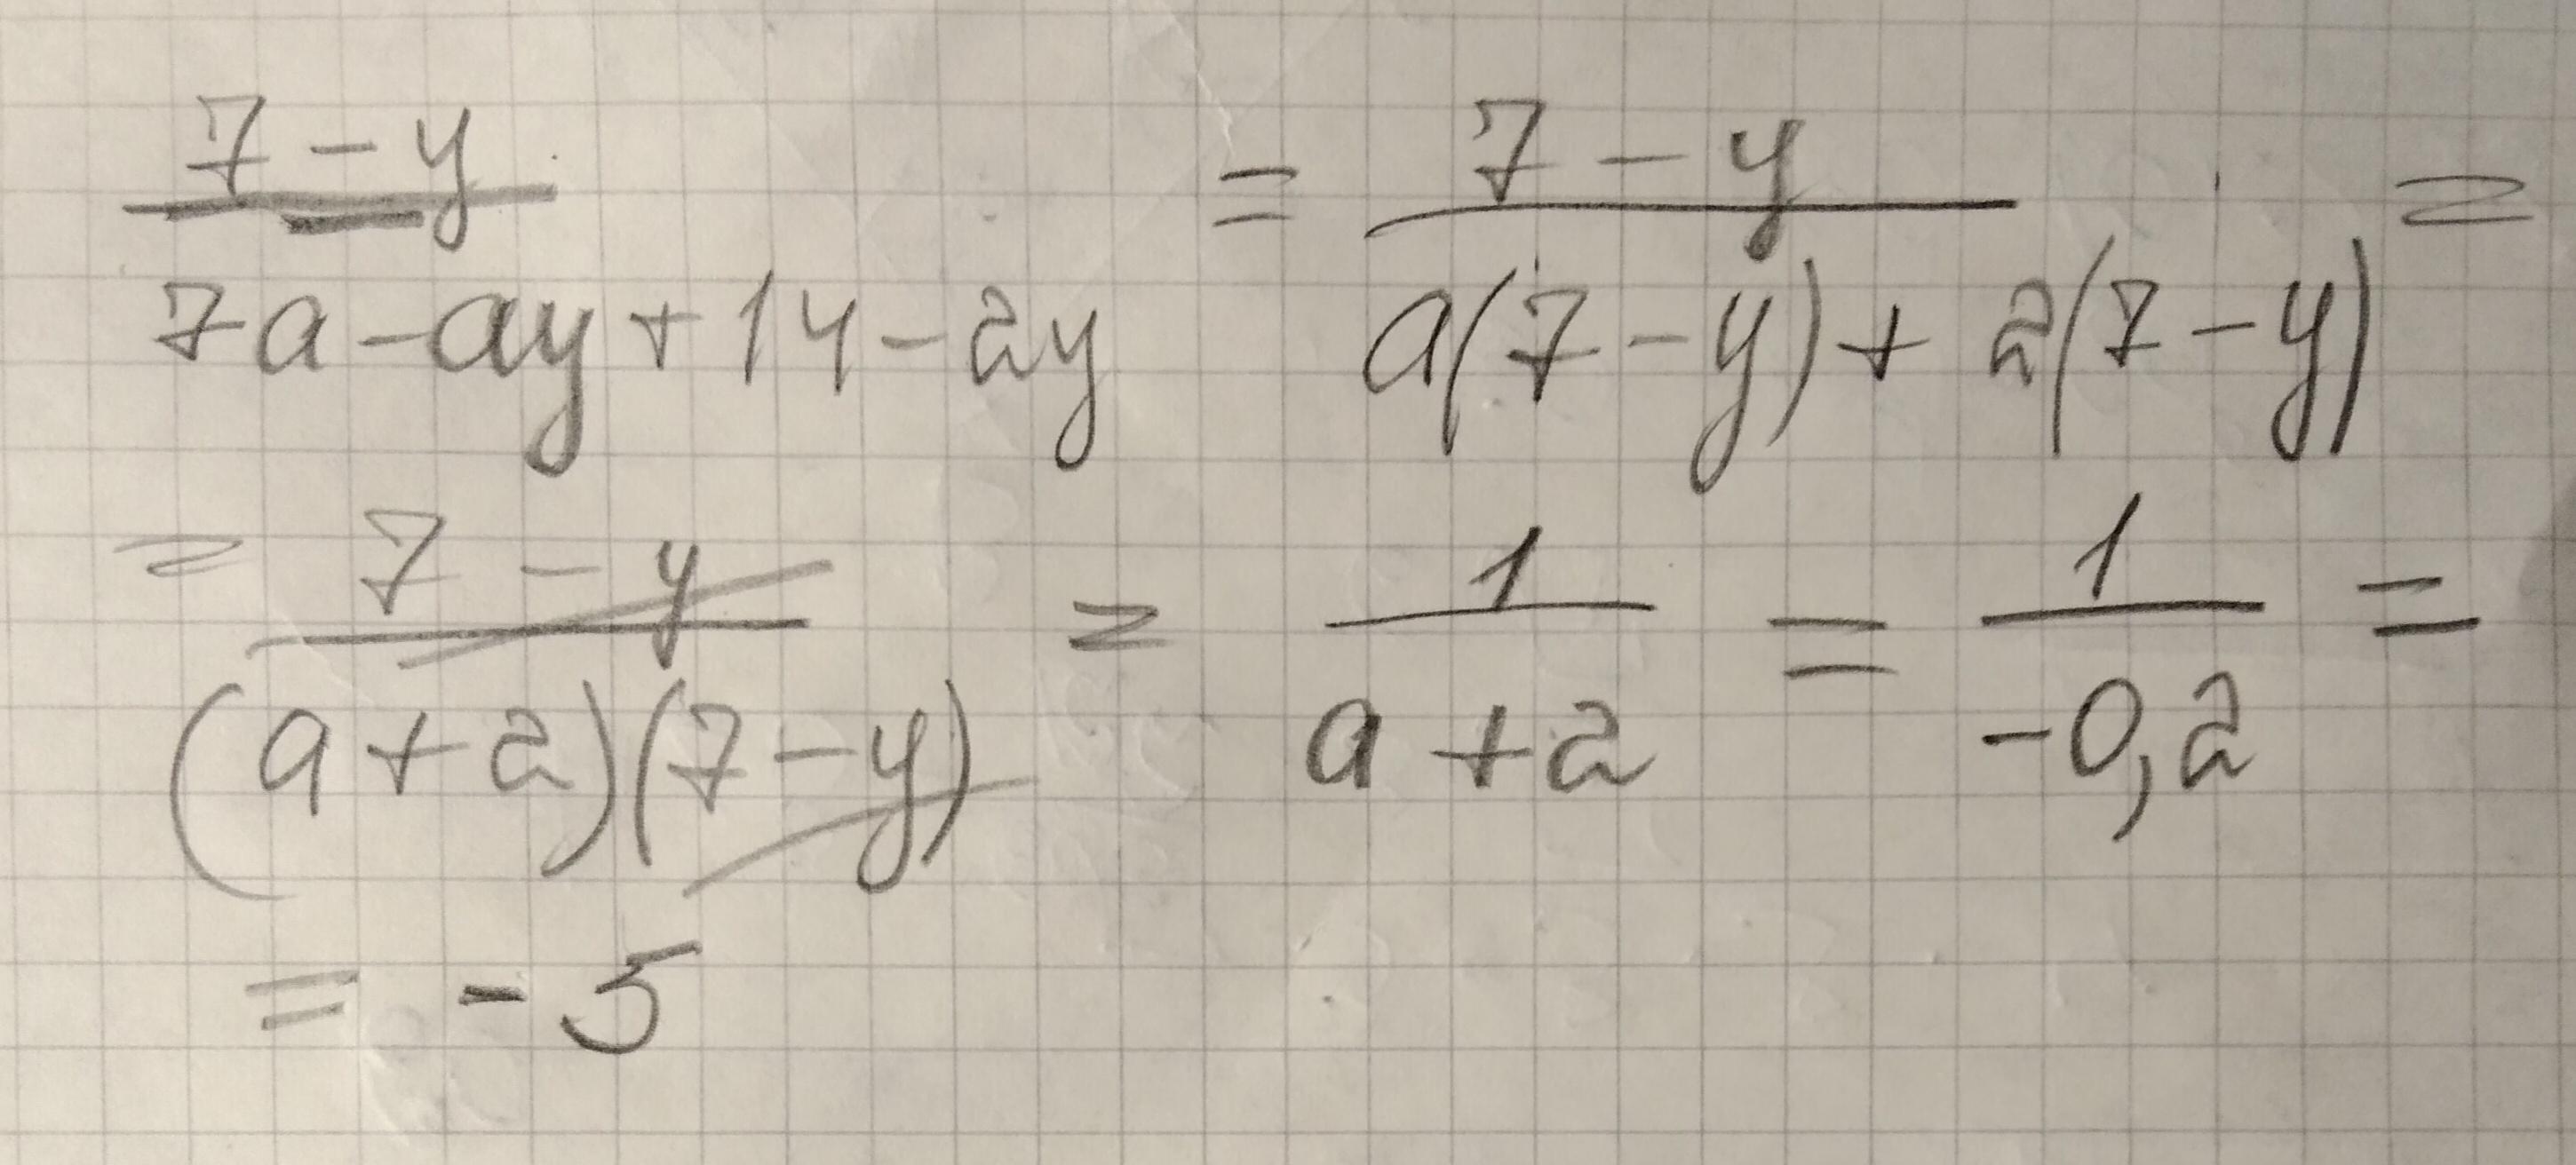 7 - y / 7a - ay + 14 - 2y = 7 - y / a(7 - y) + 2(7 - y) =
= 7 - y / (a + 2)(7 - y) = 1 / a + 2 = 1 / -0,2 =
= -5